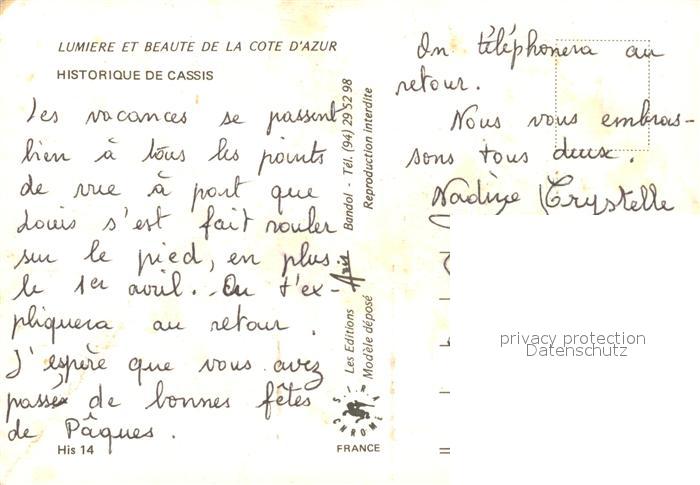 LUMIERE ET BEAUTE DE LA COTE D'AZUR
HISTORIQUE DE CASSIS
Les vacances se passent
bien à tous les points
de vue à part que
Louis s'est fait rouler
sur le pied, en plus
le 1er avril. On t'ex-
pliquera au retour.
J'espère que vous avez
passé de bonnes fêtes
de Pâques.
His 14
Les Editions Bandol - Tél. (94) 29 52 98
Modèle déposé Reproduction interdite
CHROME
FRANCE
On téléphonera au
retour.
Nous vous embras-
sons tous deux.
Nadine Crystelle
privacy protection
Datenschutz